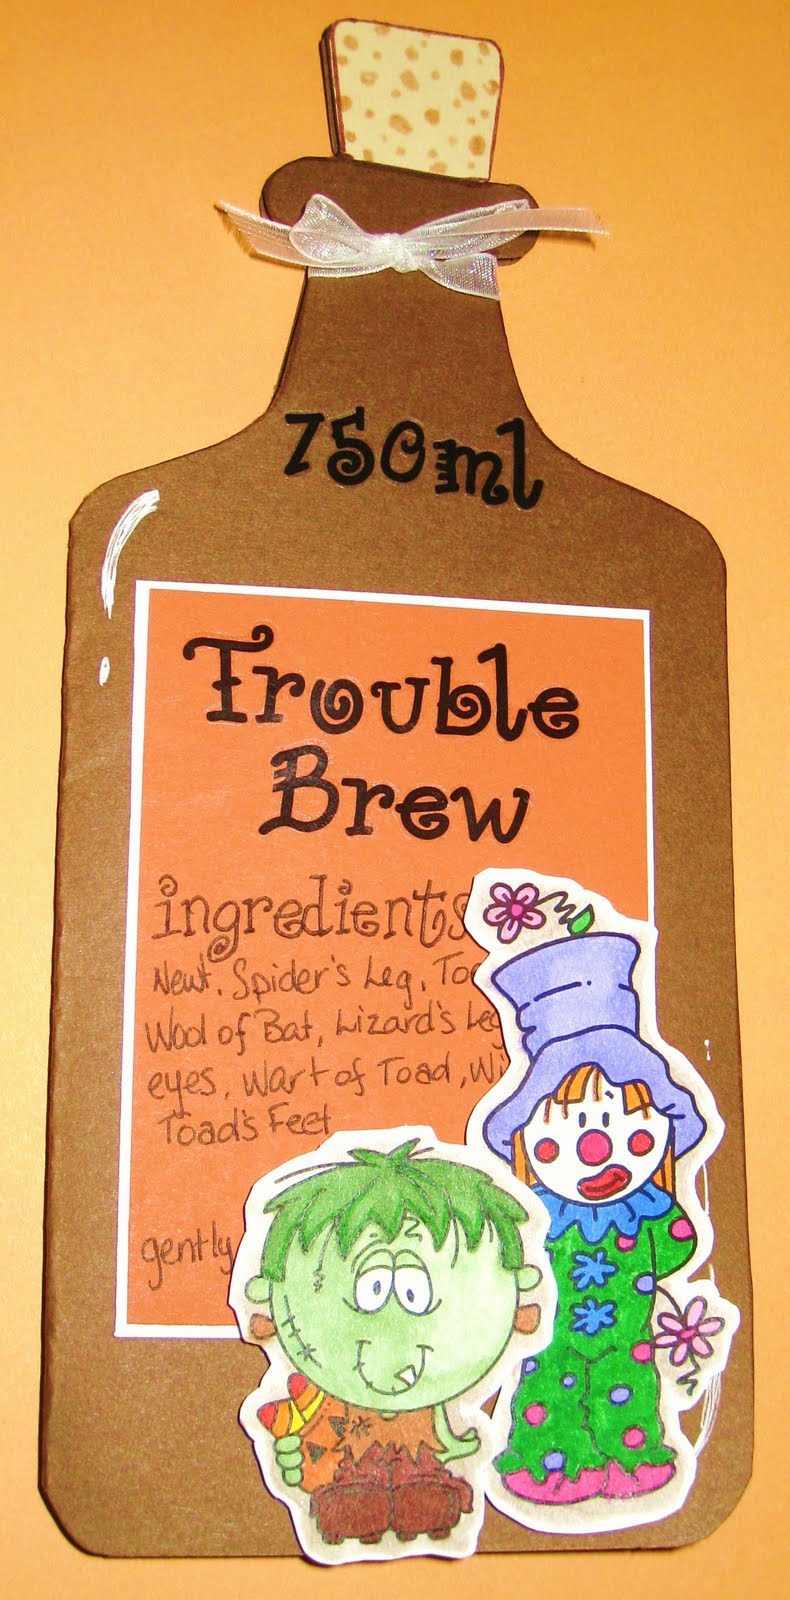 750ml
Trouble
Brew
ingredients
Newt, Spider's Leg,
Wool of Bat, Lizard's Leg
eyes, Wart of Toad,
Toad's Feet
gently